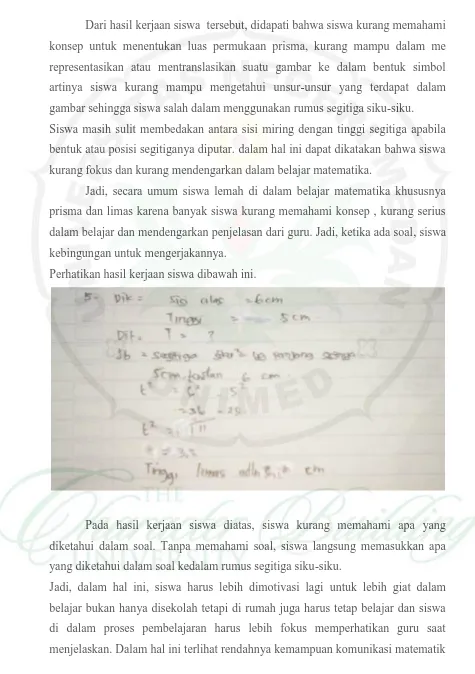 Dari hasil kerjaan siswa tersebut, didapati bahwa siswa kurang memahami
konsep untuk menentukan luas permukaan prisma, kurang mampu dalam me
representasikan atau mentranslasikan suatu gambar ke dalam bentuk simbol
artinya siswa kurang mampu mengetahui unsur-unsur yang terdapat dalam
gambar sehingga siswa salah dalam menggunakan rumus segitiga siku-siku.
Siswa masih sulit membedakan antara sisi miring dengan tinggi segitiga apabila
bentuk atau posisi segitiganya diputar. dalam hal ini dapat dikatakan bahwa siswa
kurang fokus dan kurang mendengarkan dalam belajar matematika.
Jadi, secara umum siswa lemah di dalam belajar matematika khususnya
prisma dan limas karena banyak siswa kurang memahami konsep , kurang serius
dalam belajar dan mendengarkan penjelasan dari guru. Jadi, ketika ada soal, siswa
kebingungan untuk mengerjakannya.
Perhatikan hasil kerjaan siswa dibawah ini.
5. Dik = sisi alas = 6 cm
Tinggi = 5 cm
Dit = ? = ?
5 cm 6 cm
t² = 6² 5²
= 36 - 25
t² = √11
Tinggi limas adlh cm
UNIMED
THE
Character Building
UNIVERSITY
Pada hasil kerjaan siswa diatas, siswa kurang memahami apa yang
diketahui dalam soal. Tanpa memahami soal, siswa langsung memasukkan apa
yang diketahui dalam soal kedalam rumus segitiga siku-siku.
Jadi, dalam hal ini, siswa harus lebih dimotivasi lagi untuk lebih giat dalam
belajar bukan hanya disekolah tetapi di rumah juga harus tetap belajar dan siswa
di dalam proses pembelajaran harus lebih fokus memperhatikan guru saat
menjelaskan. Dalam hal ini terlihat rendahnya kemampuan komunikasi matematik